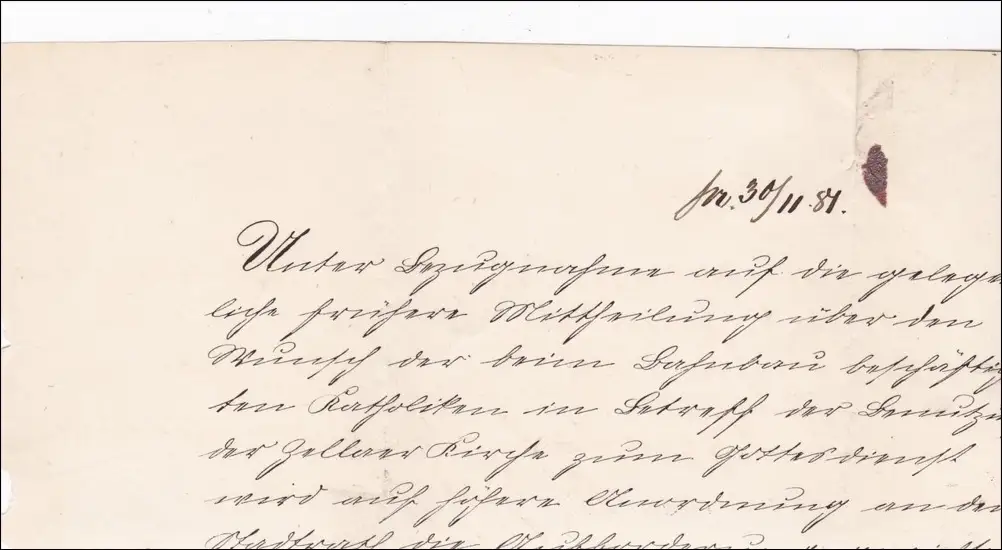 pr. 30/11.81.
Unter Bezugnahme auf die gelege
liche frühere Mittheilung über den
Wunsch der beim Bahnbau beschäftig
ten Katholiken in Betreff der Benutzu
der Zellaer Kirche zum Gottesdienst
wird auf höhere Anordnung an de
Stadtrath die